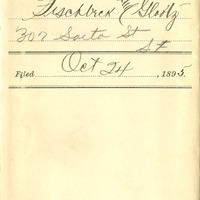 Fischbeck & Glootz
307 Sacto St
SF
Filed Oct 24, 1895.